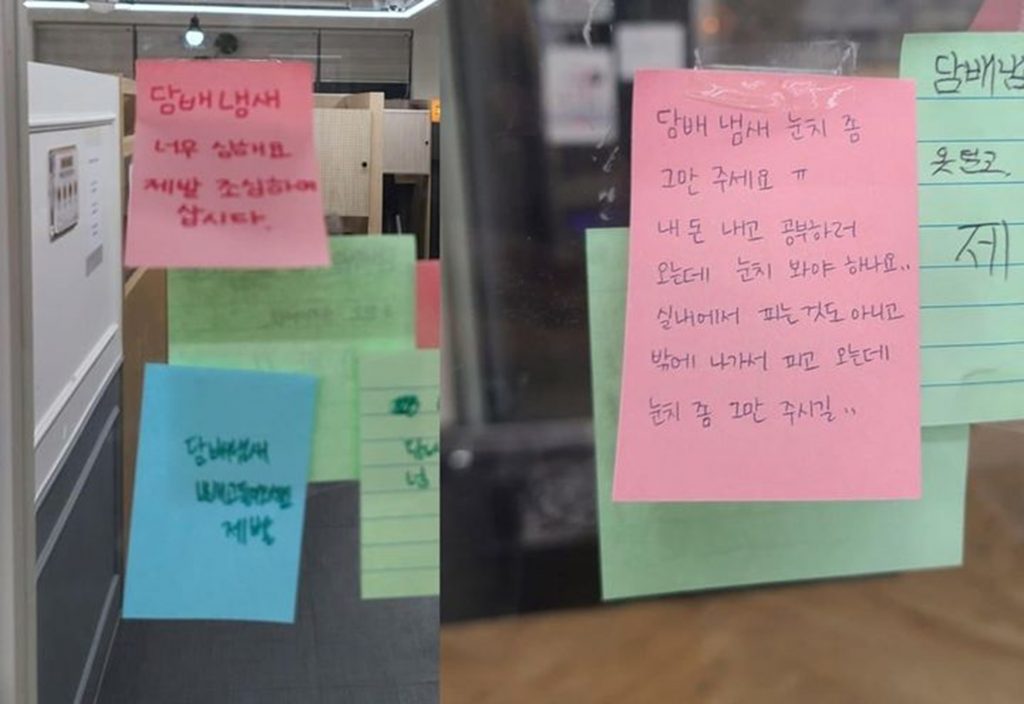 담배냄새
너무 심해요
제발 조심하며
삽시다.
담배냄새
제발
담배 냄새 눈치 좀
그만 주세요 ㅠ
내 돈 내고 공부하러
오는데 눈치 봐야 하나요..
실내에서 피는것도 아니고
밖에 나가서 피고 오는데
눈치 좀 그만 주시길..
담배냄
옷 털고.
제